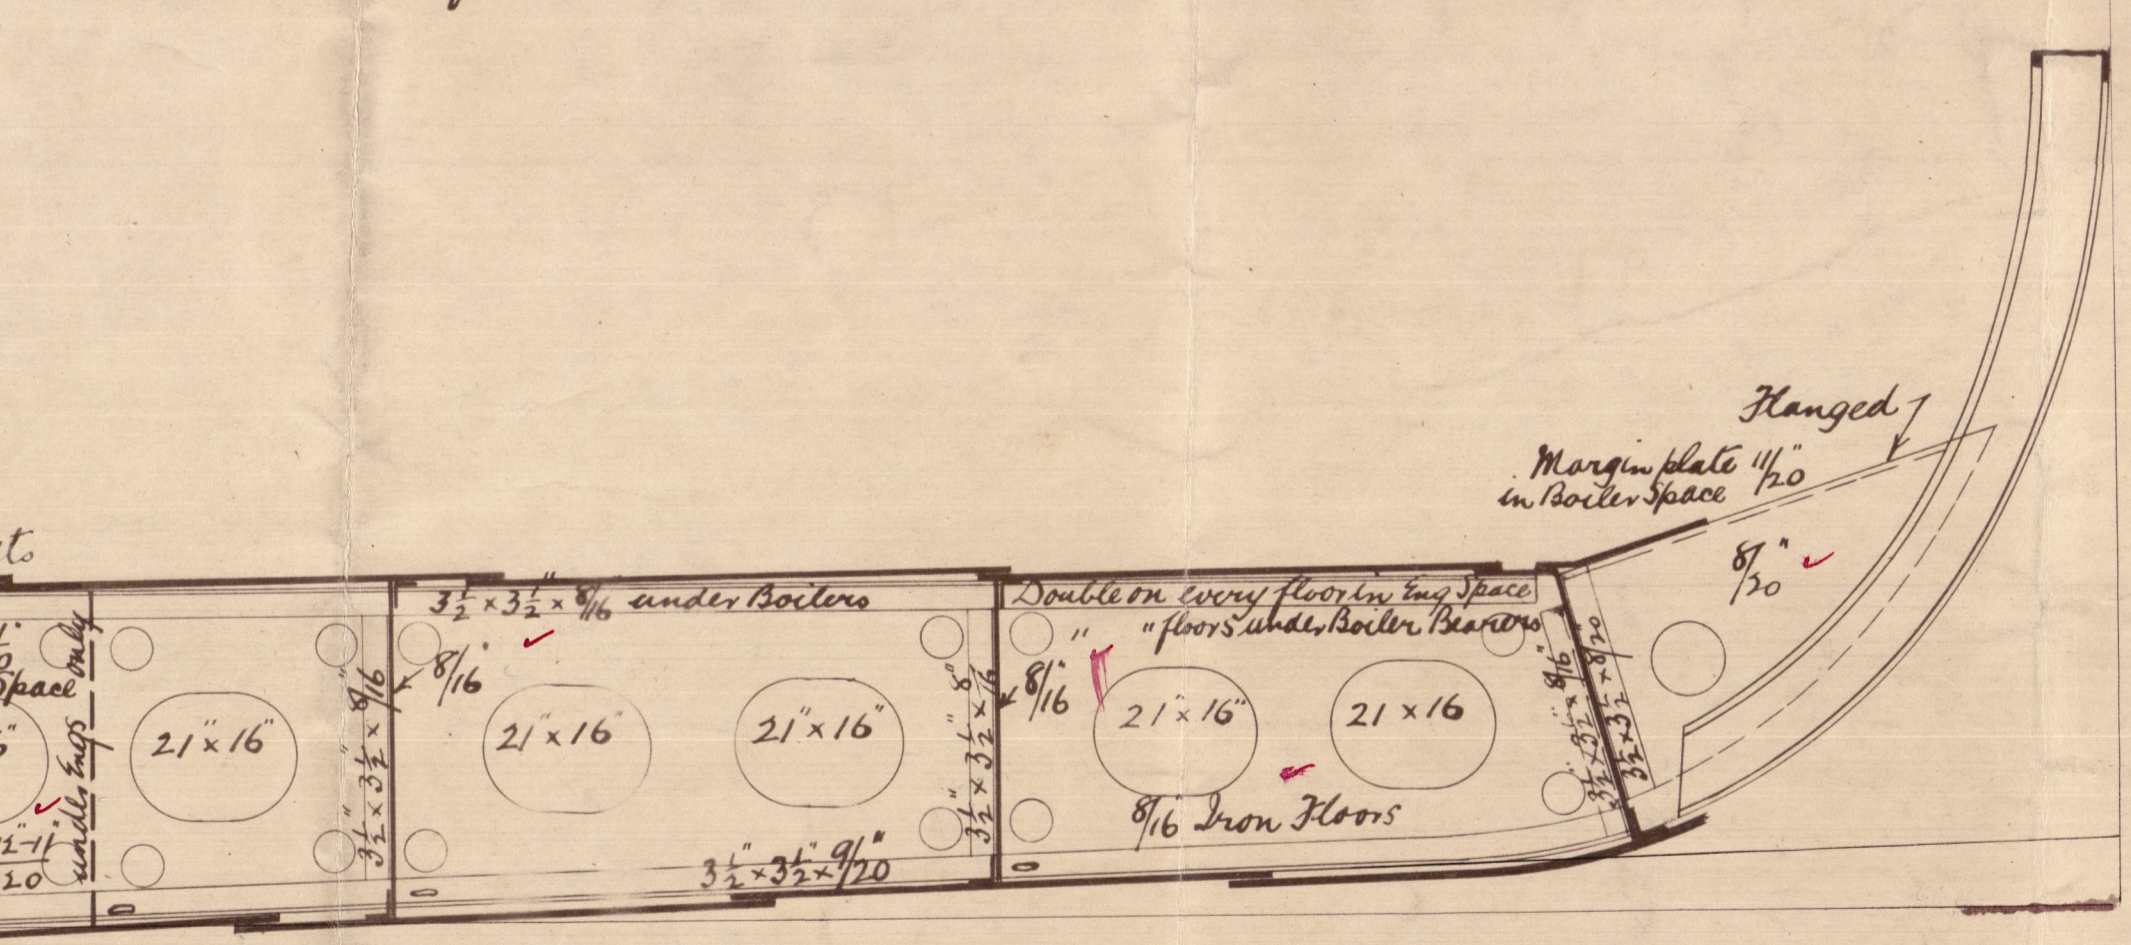 Flanged
Margin plate 11/20"
in Boiler Space
8/20"
ts
3 1/2" x 3 1/2" x 8/16" under Boilers
Double on every floor in Eng Space
" " floors under Boiler Bearers
Space
under Engs only
21" x 16"
3 1/2" x 3 1/2" x 8/16
8/16"
21" x 16"
21" x 16"
3 1/2" x 3 1/2" x 8"/16
8/16"
21" x 16"
21 x 16
3 1/2" x 3 1/2" x 8/16"
3 1/2" x 3 1/2" x 8/20"
8/16" Iron Floors
3 1/2" x 3 1/2" x 9/20"
20